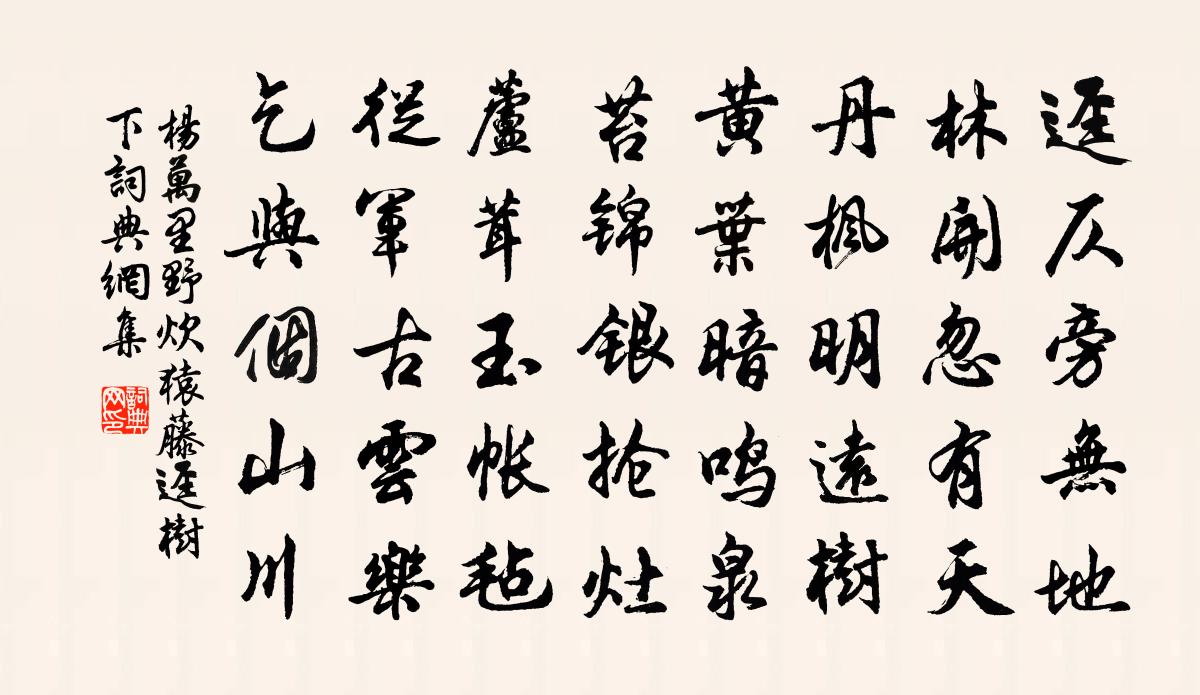 逕仄旁無地
林開忽有天
丹楓明遠樹
黃葉暗鳴泉
苔锦银抢灶
蘆茸玉帐毡
從軍古雲樂
乞與個山川
楊萬里野炊猿藤逕樹
下詞典網集
詞典网印